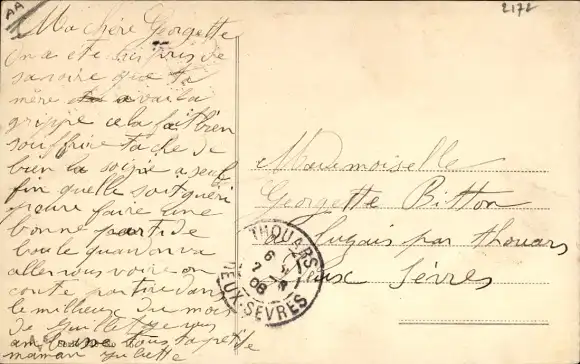 AA
2172
Ma chère Georgette
on a ete surpris de
savoire que ta
mère avai la
grippe cela fait bien
souffrire tache de
bien la soigné a seul
fin quelle soit guéri
poure faire une
bonne partide
boule quand on va
aller vous voire on
conte partire dans
le millieux du mois
de juillet je vous
embrasse tous ta petite
maman Juliette
Mademoiselle
Georgette Bitton
a Lugais par thouars
Deux Sèvres
THOUARS
6
7
08
DEUX-SEVRES